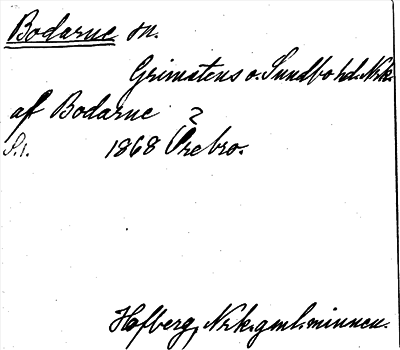 Bodarne sn.
Grimstens o. Sundbo hd. Nrk.
af Bodarne
S.1. 1868 Örebro.
Hofberg, Nrk. gml. minnen.